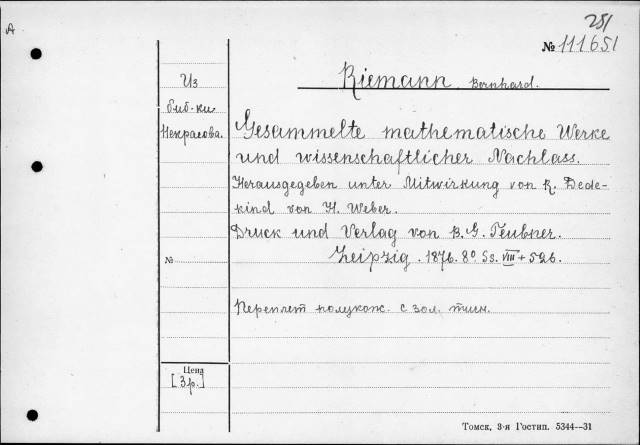 A
251
№ 111651
Из
биб-ки
Некрасова.
Riemann, Bernhard.
Gesammelte mathematische Werke
und wissenschaftlicher Nachlass.
Herausgegeben unter Mitwirkung von R. Dede-
kind von H. Weber.
Druck und Verlag von B. G. Teubner.
Leipzig. 1876. 8º. Ss. VIII + 526.
№
Переплет полукож. с зол. тисн.
Цена
[3р.]
Томск, 3-я Гостип. 5344—31